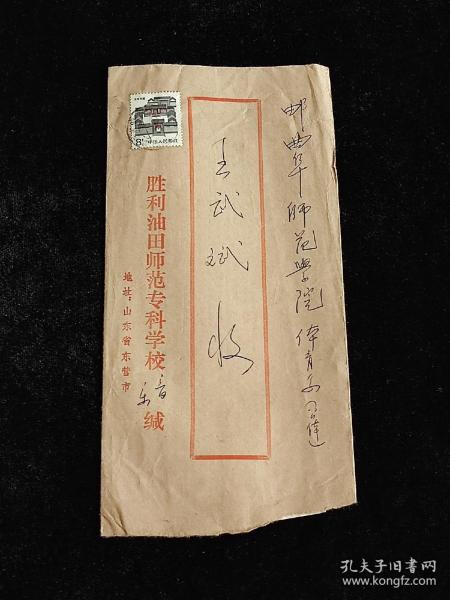 邮曲阜师范学院体育系
王武斌 收
胜利油田师范专科学校 音乐 缄
地址：山东省东营市
8分 中国人民邮政
孔夫子旧书网
www.kongfz.com